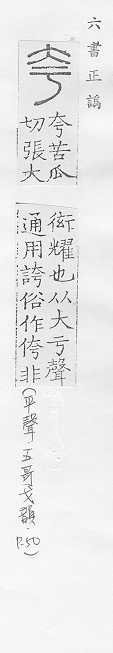 六書正譌
夸苦瓜
切張大
衒耀也从大亏聲
通用誇俗作侉非
(平聲.五哥戈韻.
P.50)